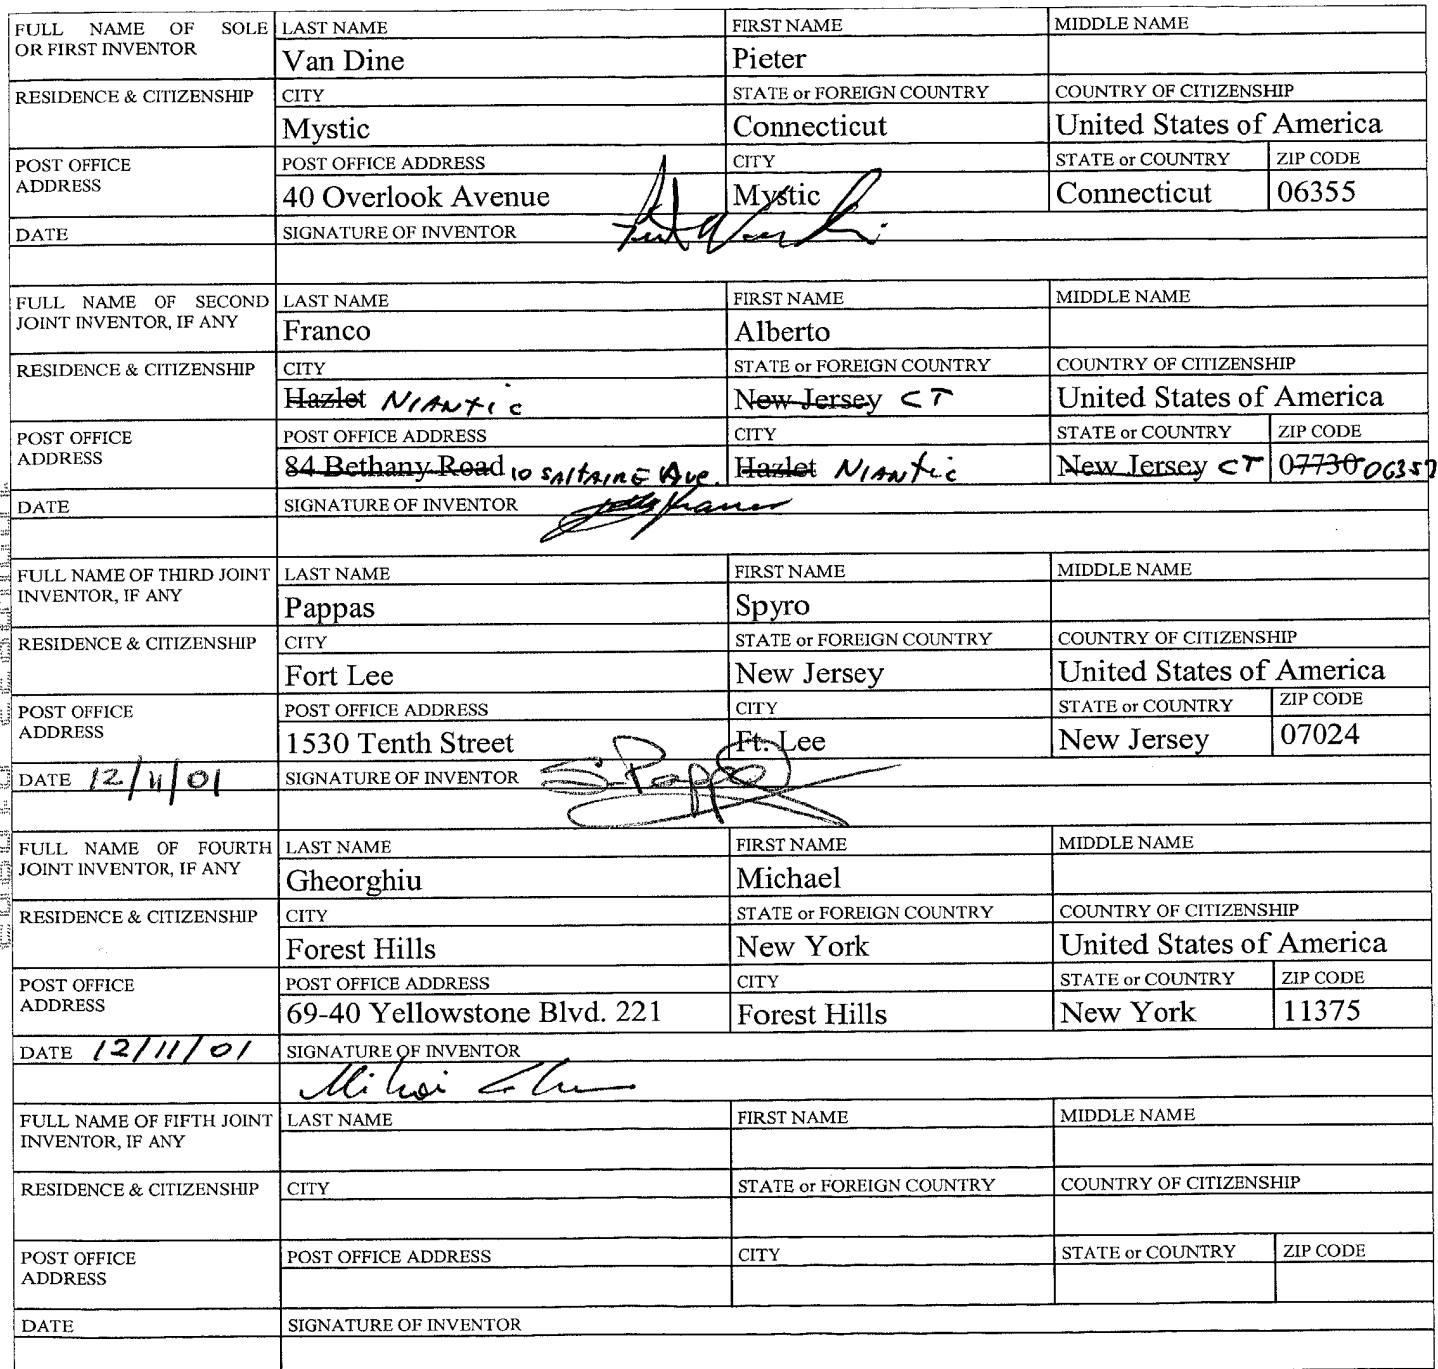 FULL NAME OF SOLE OR FIRST INVENTOR
LAST NAME FIRST NAME MIDDLE NAME
Van Dine Pieter
RESIDENCE & CITIZENSHIP
CITY STATE or FOREIGN COUNTRY COUNTRY OF CITIZENSHIP
Mystic Connecticut United States of America
POST OFFICE ADDRESS
POST OFFICE ADDRESS CITY STATE or COUNTRY ZIP CODE
40 Overlook Avenue Mystic Connecticut 06355
DATE SIGNATURE OF INVENTOR
FULL NAME OF SECOND JOINT INVENTOR, IF ANY
LAST NAME FIRST NAME MIDDLE NAME
Franco Alberto
RESIDENCE & CITIZENSHIP
CITY STATE or FOREIGN COUNTRY COUNTRY OF CITIZENSHIP
Hazlet NIANTIC New Jersey CT United States of America
POST OFFICE ADDRESS
POST OFFICE ADDRESS CITY STATE or COUNTRY ZIP CODE
84 Bethany Road 10 SALTAIRE AVE. Hazlet NIANTIC New Jersey CT 07730 06357
DATE SIGNATURE OF INVENTOR
FULL NAME OF THIRD JOINT INVENTOR, IF ANY
LAST NAME FIRST NAME MIDDLE NAME
Pappas Spyro
RESIDENCE & CITIZENSHIP
CITY STATE or FOREIGN COUNTRY COUNTRY OF CITIZENSHIP
Fort Lee New Jersey United States of America
POST OFFICE ADDRESS
POST OFFICE ADDRESS CITY STATE or COUNTRY ZIP CODE
1530 Tenth Street Ft. Lee New Jersey 07024
DATE 12/11/01 SIGNATURE OF INVENTOR S. Pappas
FULL NAME OF FOURTH JOINT INVENTOR, IF ANY
LAST NAME FIRST NAME MIDDLE NAME
Gheorghiu Michael
RESIDENCE & CITIZENSHIP
CITY STATE or FOREIGN COUNTRY COUNTRY OF CITIZENSHIP
Forest Hills New York United States of America
POST OFFICE ADDRESS
POST OFFICE ADDRESS CITY STATE or COUNTRY ZIP CODE
69-40 Yellowstone Blvd. 221 Forest Hills New York 11375
DATE 12/11/01 SIGNATURE OF INVENTOR
Mihai
FULL NAME OF FIFTH JOINT INVENTOR, IF ANY
LAST NAME FIRST NAME MIDDLE NAME
RESIDENCE & CITIZENSHIP
CITY STATE or FOREIGN COUNTRY COUNTRY OF CITIZENSHIP
POST OFFICE ADDRESS
POST OFFICE ADDRESS CITY STATE or COUNTRY ZIP CODE
DATE SIGNATURE OF INVENTOR